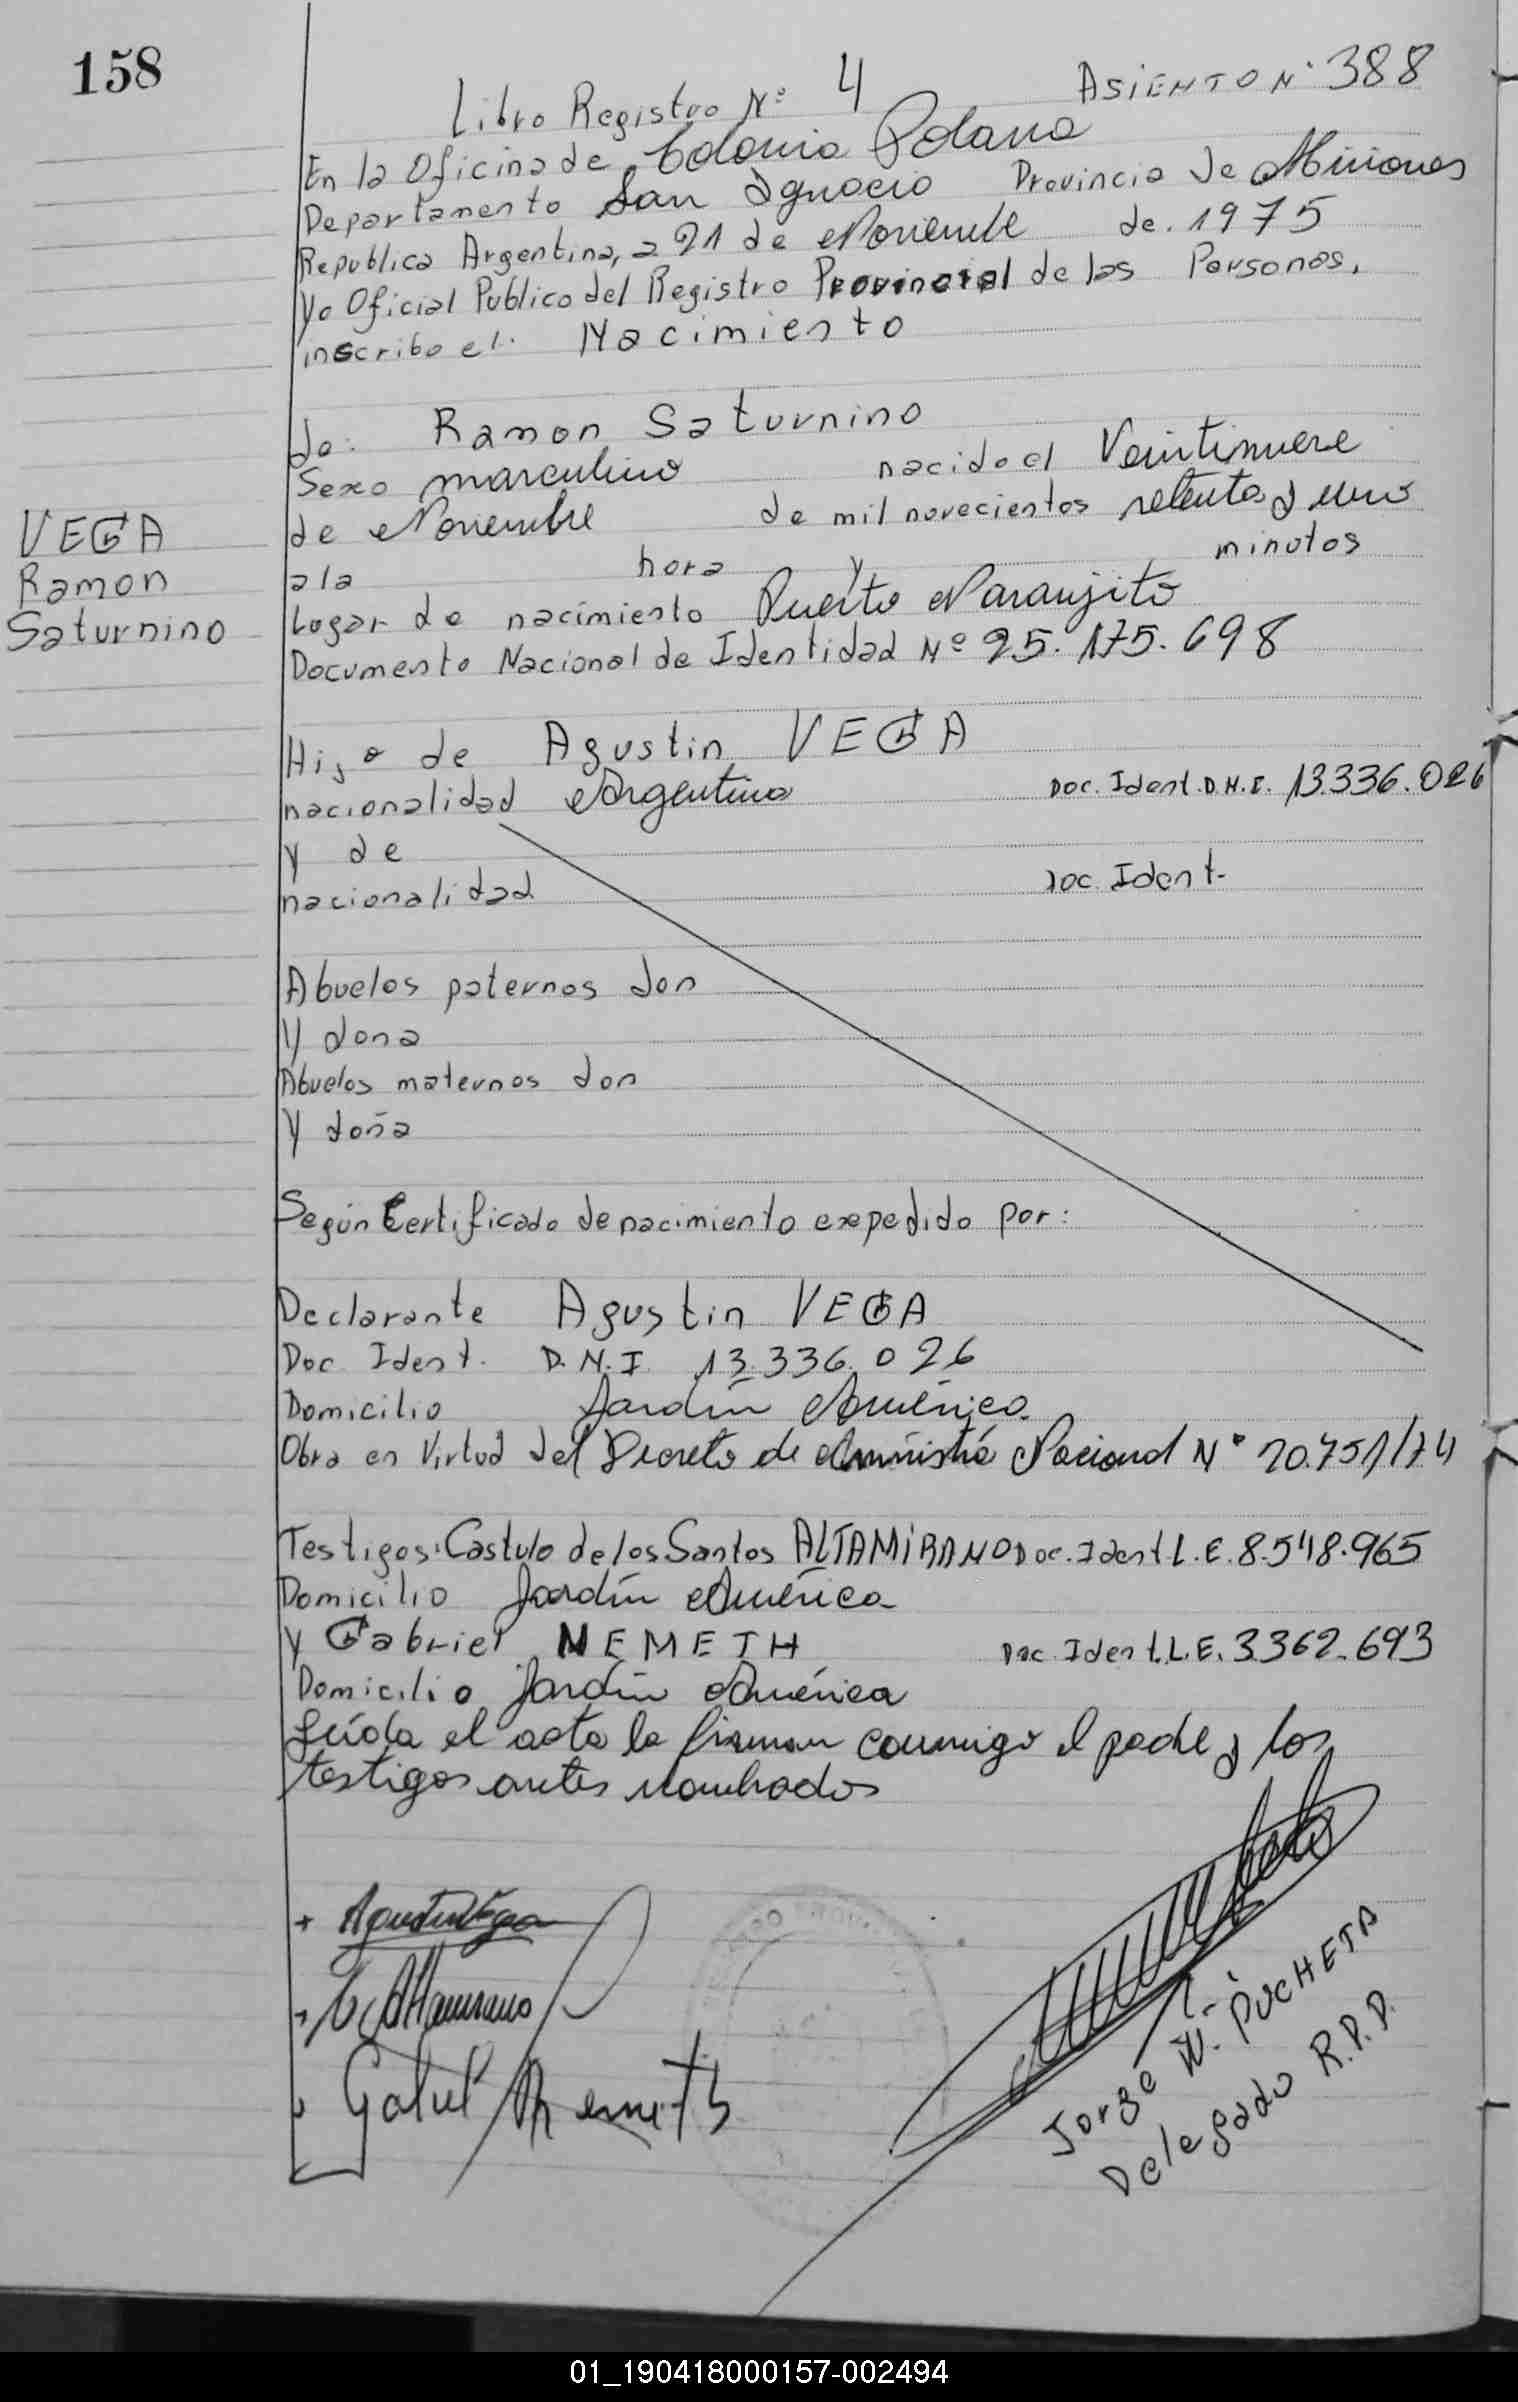 158
Libro Registro Nº 4 ASIENTO Nº 388
En la Oficina de Colonia Polana
Departamento San Ignacio Provincia de Misiones
Republica Argentina, a 21 de Noviembre de 1975
Yo Oficial Publico del Registro Provincial de las Personas,
inscribo el. Nacimiento
de: Ramon Saturnino
Sexo masculino nacido el Veintinueve
de Noviembre de mil novecientos setenta y uno
VEGA
Ramon
Saturnino
a la hora y minutos
Lugar de nacimiento Puerto Naranjito
Documento Nacional de Identidad Nº 25.175.698
Hijo de Agustin VEGA
nacionalidad Argentina Doc. Ident. D.N.I. 13.336.026
y de
nacionalidad Doc. Ident.
Abuelos paternos don
y dona
Abuelos maternos don
y doña
Según Certificado de nacimiento expedido por:
Declarante Agustin VEGA
Doc. Ident. D.N.I. 13.336.026
Domicilio Jardín América.
Obra en Virtud del Decreto de Amnistía Nacional Nº 20.751/74
Testigos: Castulo de los Santos ALTAMIRANO Doc. Ident L.E. 8.548.965
Domicilio Jardín América
y Gabriel NEMETH Doc. Ident. L.E. 3.362.693
Domicilio Jardín América
Leída el acta la firman conmigo el padre y los
testigos antes nombrados
Agustin Vega
Altamirano
Gabriel Nemeth
Jorge W. PUCHETA
Delegado R.P.P.
01_190418000157-002494